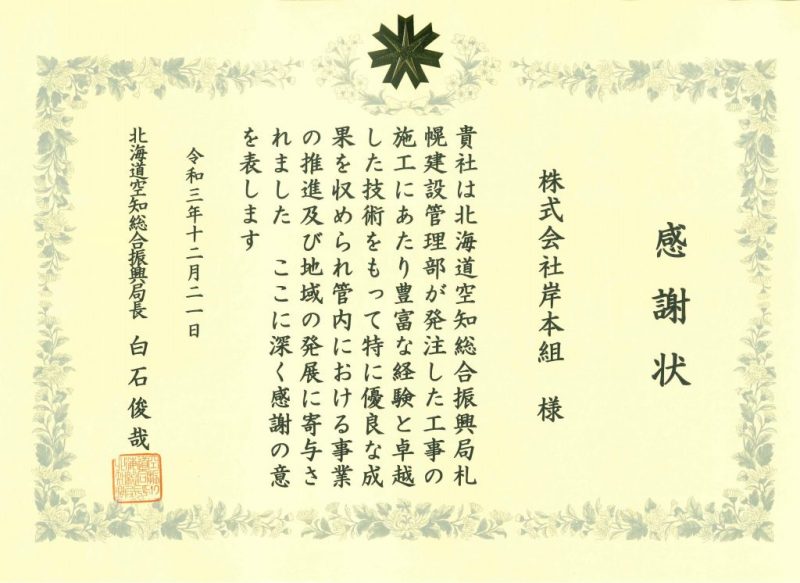 感謝状
株式会社岸本組 様
貴社は北海道空知総合振興局札
幌建設管理部が発注した工事の
施工にあたり豊富な経験と卓越
した技術をもって特に優良な成
果を収められ管内における事業
の推進及び地域の発展に寄与さ
れました ここに深く感謝の意
を表します
令和三年十二月二一日
北海道空知総合振興局長 白石俊哉